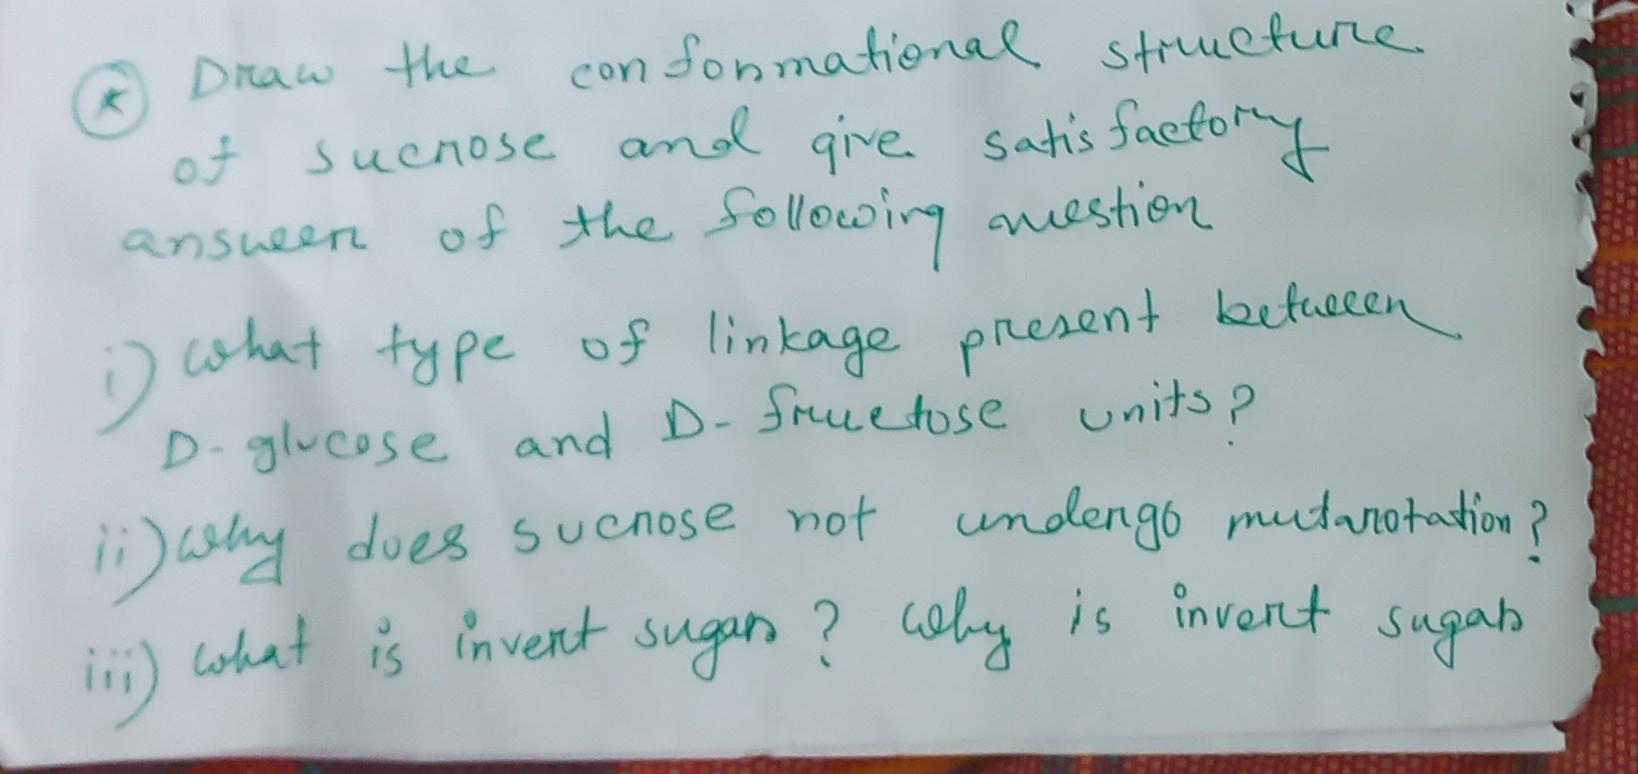 * Draw the conformational structure
of sucrose and give satisfactory
answer of the following question
i) What type of linkage present between
D-glucose and D-fructose units?
ii) Why does sucrose not undergo mutarotation?
iii) What is invert sugar? Why is invert sugar